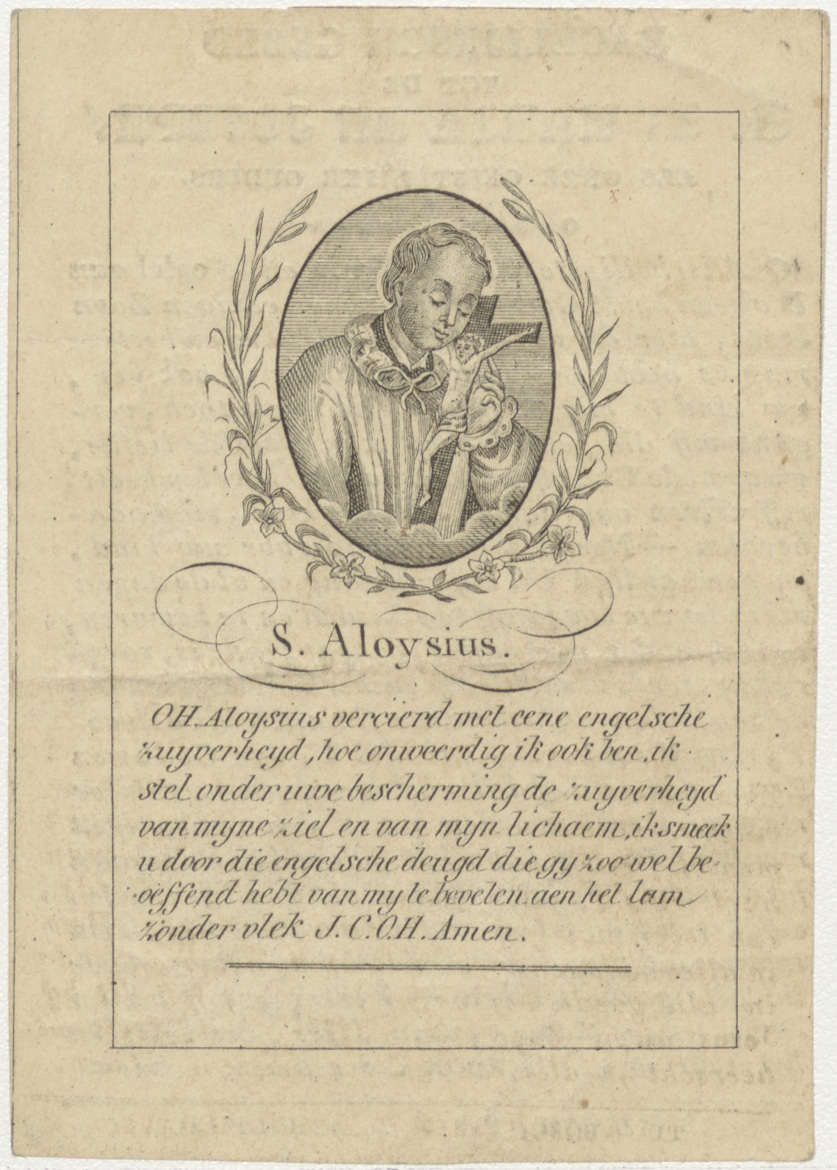 S. Aloysius.
OH. Aloysius vercierd met eene engelsche
zuyverheyd, hoe onweerdig ik ook ben, ik
stel onder uwe bescherming de zuyverheyd
van myne ziel en van myn lichaem, ik smeek
u door die engelsche deugd die gy zoo wel be-
oëffend hebt van my te bevelen aen het lam
zonder vlek J. C. O. H. Amen.